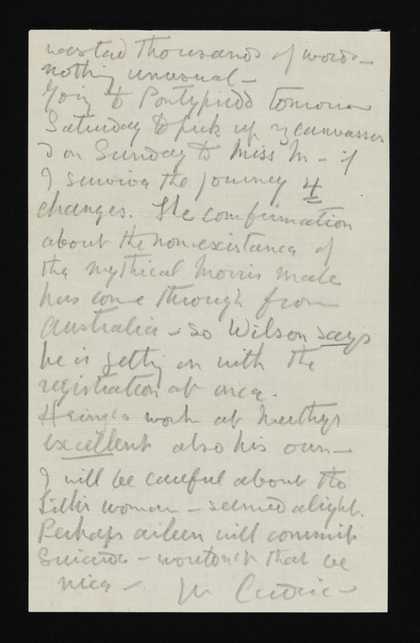 wasted thousands of words –
nothing unusual –
Going to Pontypridd tomorrow
Saturday to pick up my canvasses
& on Sunday to Miss M – if
I survive the journey 4
changes. The confirmation
about the nonexistance of
the mythical Morris male
has come through from
Australia – so Wilson says
he is getting on with the
registration at once.
work at
excellent also his own –
I will be careful about the
woman – seemed alright.
Perhaps aileen will commit
Suicide – wouldn't that be
nice –